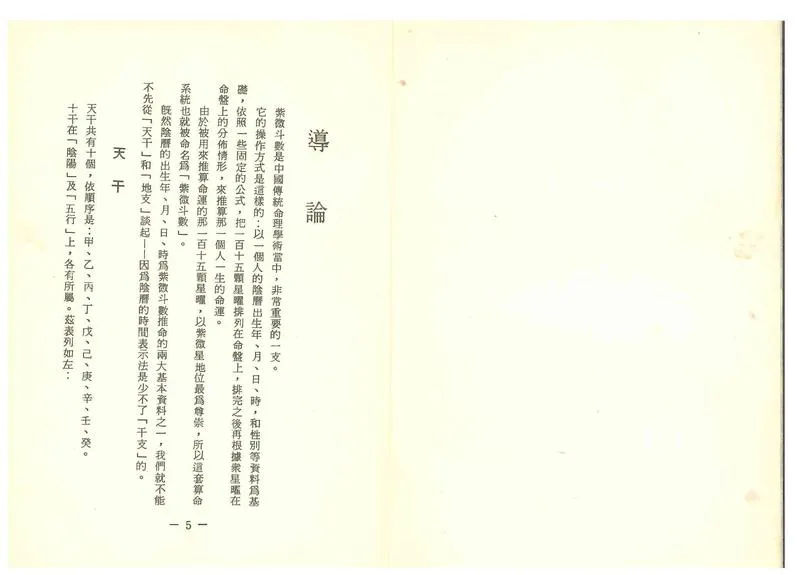 導論
紫微斗數是中國傳統命理學術當中，非常重要的一支。
它的操作方式是這樣的：以一個人的陰曆出生年、月、日、時，和性別等資料為基
礎，依照一些固定的公式，把一百十五顆星曜排列在命盤上，排完之後再根據衆星曜在
命盤上的分佈情形，來推算那一個人一生的命運。
由於被用來推算命運的那一百十五顆星曜，以紫微星地位最爲尊崇，所以這套算命
系統也就被命名爲「紫微斗數」。
旣然陰曆的出生年、月、日、時爲紫微斗數推命的兩大基本資料之一，我們就不能
不先從「天干」和「地支」談起——因爲陰曆的時間表示法是少不了「干支」的。
天干
天干共有十個，依順序是：甲、乙、丙、丁、戊、己、庚、辛、壬、癸。
十干在「陰陽」及「五行」上，各有所屬。茲表列如左：
— 5 —